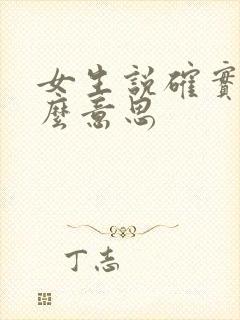 女生説確實
麼意思
丁志